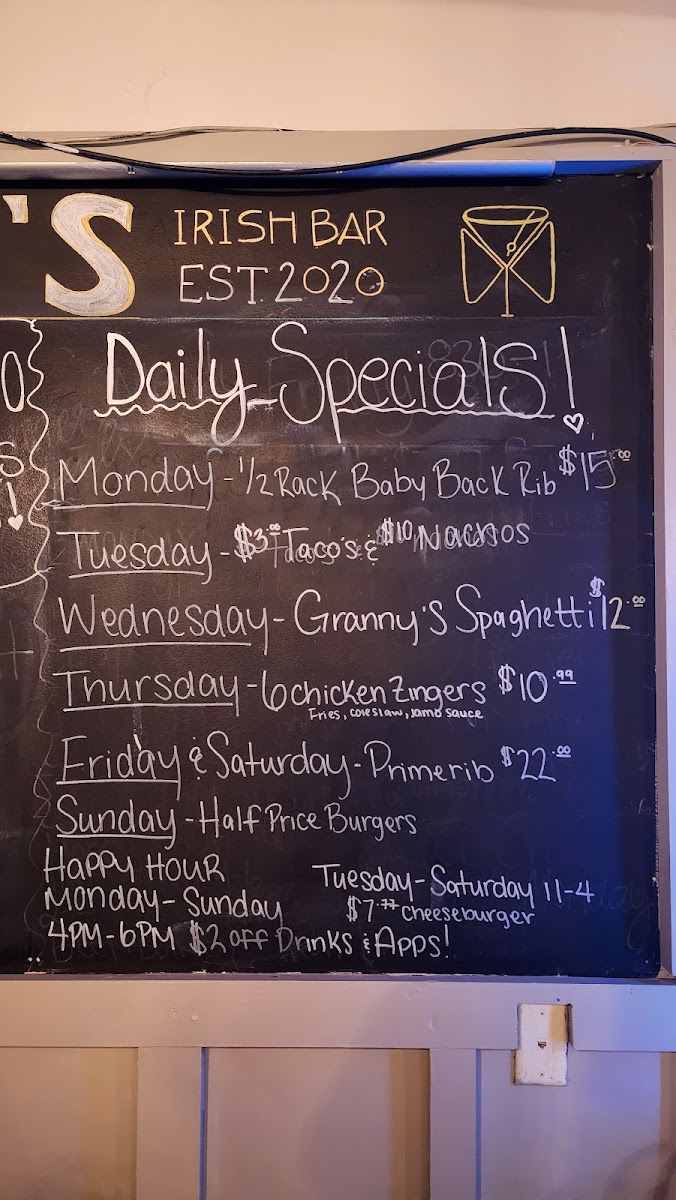 'S IRISH BAR
EST. 2020
Daily Specials!
Monday - 1/2 Rack Baby Back Rib $15.00
Tuesday - $3.00 Taco's & $10 Nachos
Wednesday - Granny's Spaghetti $12.00
Thursday - 6 chicken Zingers $10.99
Fries, coleslaw, Jamo sauce
Friday & Saturday - Primerib $22.00
Sunday - Half Price Burgers
Happy Hour
Monday - Sunday
4PM-6PM $2 off Drinks & Apps!
Tuesday - Saturday 11-4
$7.77 Cheeseburger